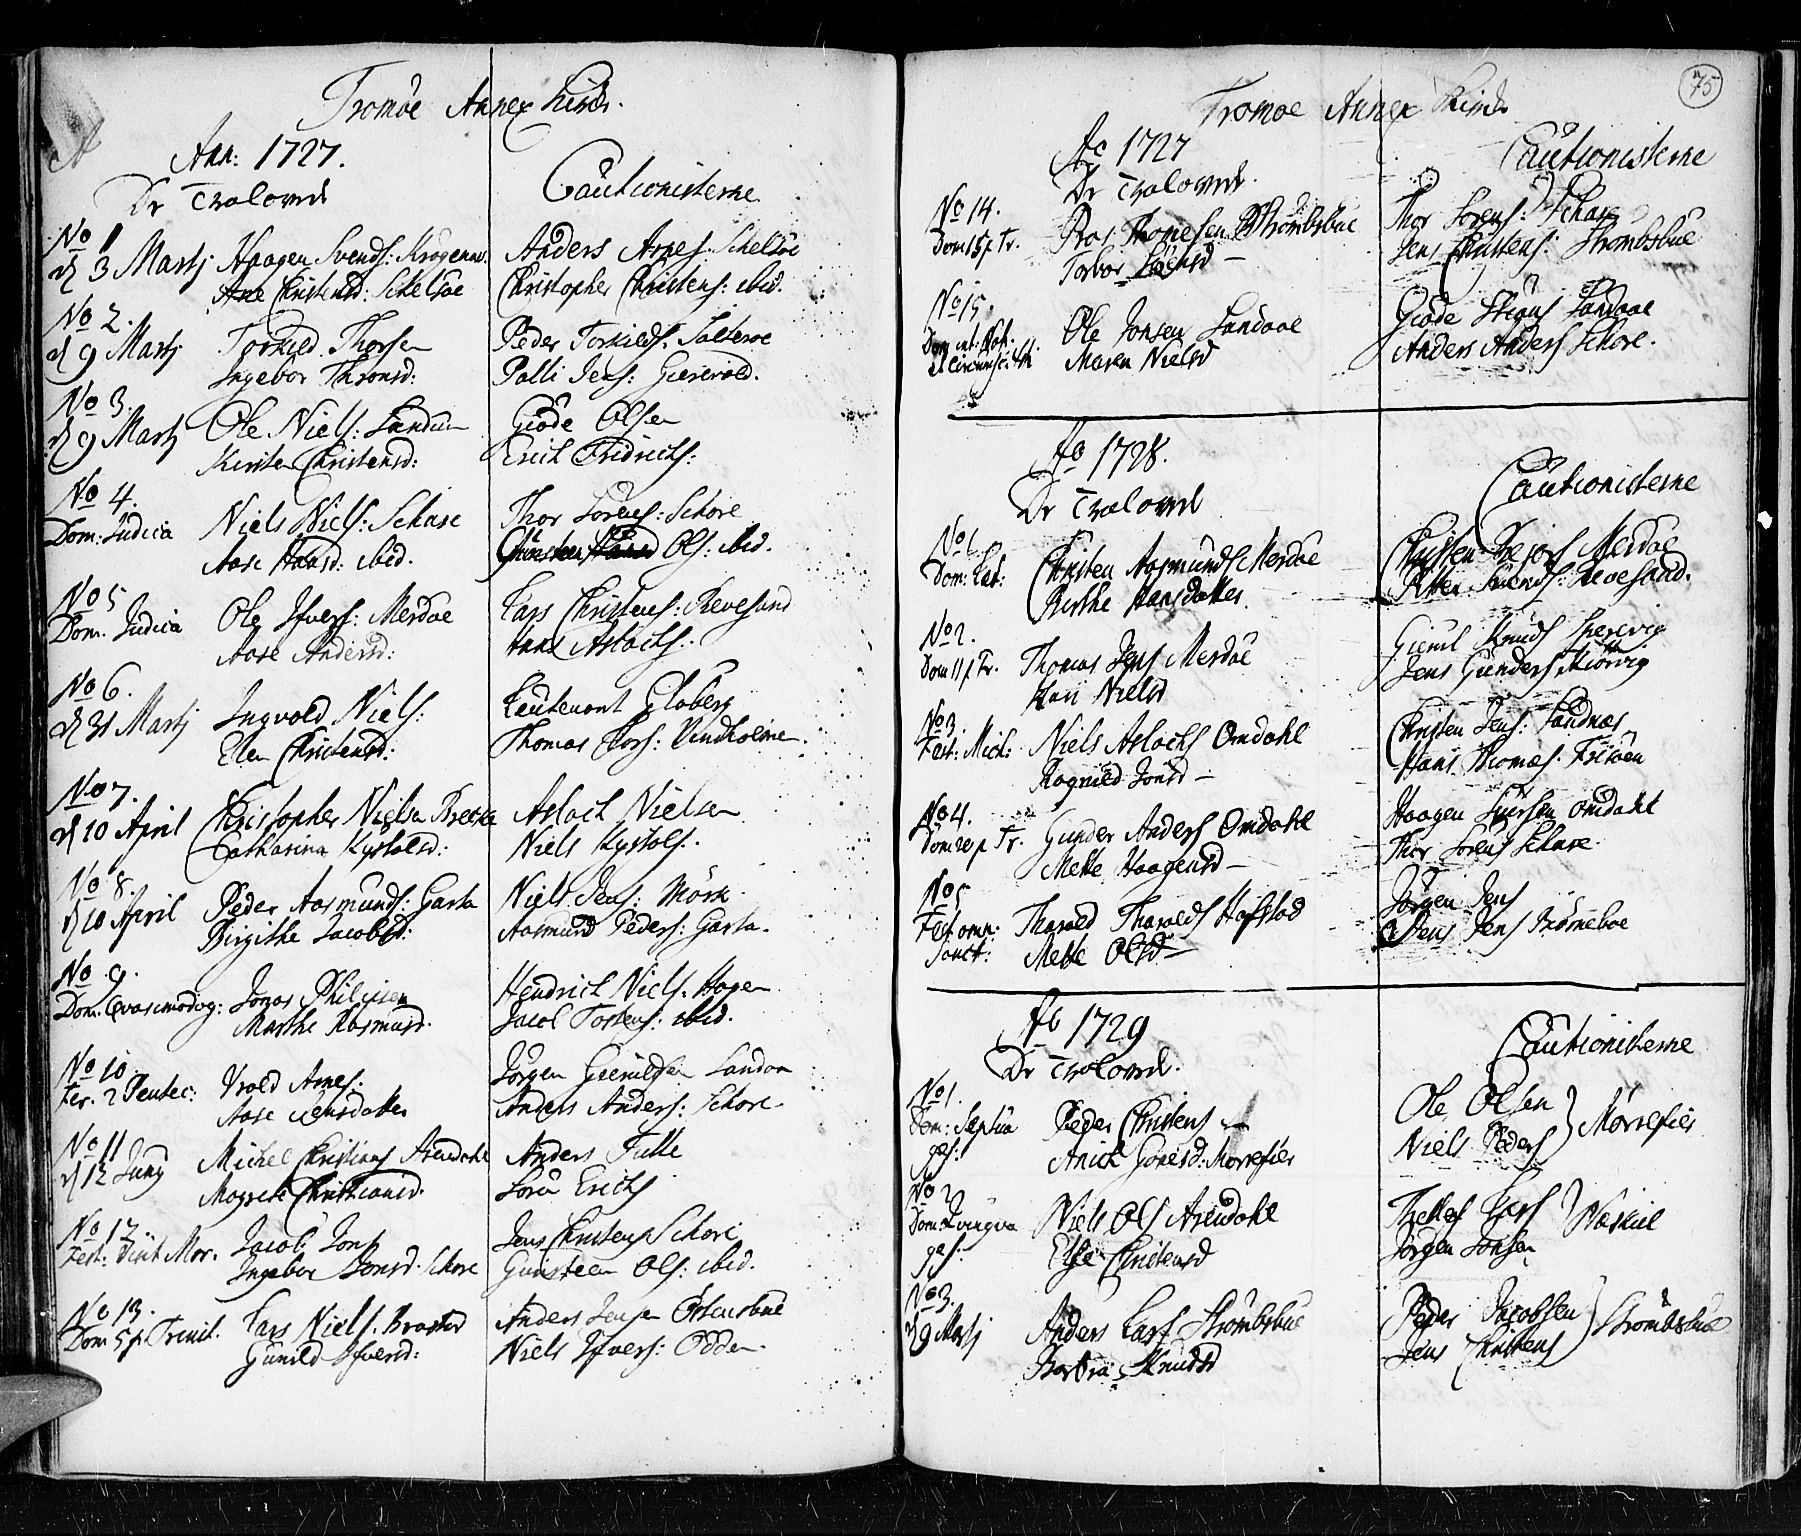 Tromøe Annex Kirke.
Ann: 1727.
De Trolovede
Cautionisterne
No 1
d 3 Martj Haagen Svends: Krogenes.
Ane Christensd: Schelsøe
Anders Arnes: Schelsøe
Christopher Christens: ibid.
No 2.
d 9 Martj Torkild Thorsen
Ingebor Thronsd:
Peder Torkilds: Salterøe
Palli Jens: Giervold.
No 3.
d 9 Martj Ole Niels: Sandum
Kirsten Christensd:
Giøde Olsen
Erich Fridrichs:
No 4.
Dom: Judica Niels Niels: Schare
Aase Haasd: ibid.
Thor Sørens: Schore
Ols: ibid.
No 5
Dom. Judica Ole Ifvers: Merdøe
Aase Andersd:
Lars Christens: Revesand
Hans Aslachs.
No 6.
d 31 Martj Ingvold Niels:
Elen Christensd:
Lieutenant Globerg
Thomas Thors: Vindholme.
No 7.
d 10 April Christopher Nielsen Brecke
Catharina Kystolsd:
Aslach Nielsen
Niels Kystols.
No 8.
d 10 April Peder Aasmunds: Garta
Birgithe Jacobsd:
Niels Jens: Mörk
Aasmund Peders: Garta.
No 9.
Dom. Qvasimodog: Jonas Philipsen
Marthe Rasmusd.
Hendrich Niels. Hagen
Jacob Tostens: ibid.
No 10.
Fer. 2 Pentec: Vrold Arnes:
Aase Jensdatter
Jørgen Gierulfsen Sandaa
Anders Anders: Schore
No 11
d 12 Junj Michel Christians Arendahl
Magrete Christiansd.
Anders Tulle
Sørn Erichs
No 12
Fest: Visit Mar. Jacob Jons
Ingebor Jonsd. Schore
Jens Christens Schore
Gunsteen Ols: ibid.
No 13.
Dom 5 p. Trinit. Lars Niels. Bratter
Gunild Ifversd:
Anders Jensen Östensbue
Niels Ifvers: Odden.
75
Tromøe Annex Kirke
Ao 1727
De Trolovede.
Cautionisterne
No 14.
Dom 15 p Tr. Thomesen Strömbsbue
Torbor
Thor Sørens: Schare
Jens Christens: Strømbsbue
No 15
Ole Jonsen Sandaae
Maren Nielsd
Giøde Stigus Sandaae
Anders Anders Schore.
Ao 1728.
De Trolovede
Cautionisterne
No 1
Dom: Læt: Christen Aasmunds Merdøe
Birthe Hansdatter
Christen Merdøe
Svends: Revesand.
No 2.
Dom 11 p Tr. Thomas Jens Merdøe
Kari Nielsd
Gierul Knuds Spervig
Jens Gunders Niørvig
No 3
Fest: Mich: Niels Aslachs Omdahl
Ragnild Jonsd
Christen Jens: Sandnæs
Hans Thomæs. Frisøen
No 4.
Dom 20 p Tr. Gunder Anders Omdahl
Mette Haagensd
Haagen Iversen Omdahl
Thor Sørens Schare.
No 5
Fest omn: Tharald Tharalds Hofstad
Sanct: Mette Olsd
Jørgen Jens
Jens Jens Brømeboe
Ao 1729
De Trolovede.
Cautionisterne
No 1.
Dom: Septua Peder Christens
ges: Anich Gonesd: Morrefiær
Ole Olsen
Niels Peders } Mørrefiær
No 2
Dom: Qvinqva Niels Ols Arendahl
ges: Else Christensd
Thellef Lars
Jørgen Jonsen } Næskiil
No 3.
d 9 Martj Anders Lars Strömbsbue
Barbra Knudsd
Peder Jacobsen
Jens Christens } Strömbsbue